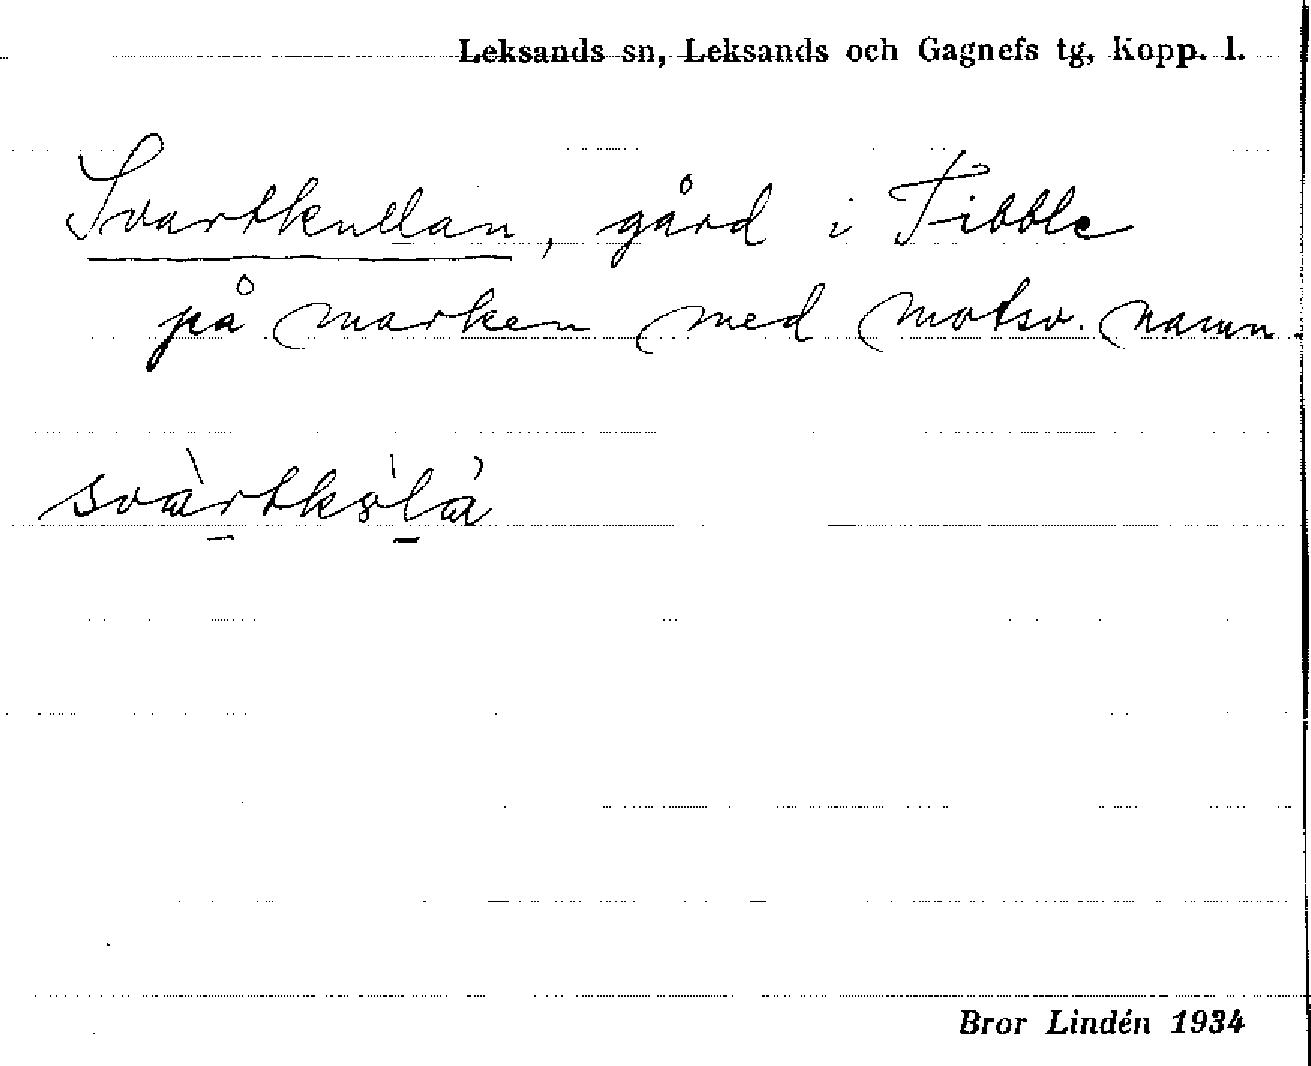 Leksands sn, Leksands och Gagnefs tg, Kopp. l.
Svartkullan, gård i Tibble
på marken med motsv. namn.
svàrtkòlà
Bror Lindén 1934